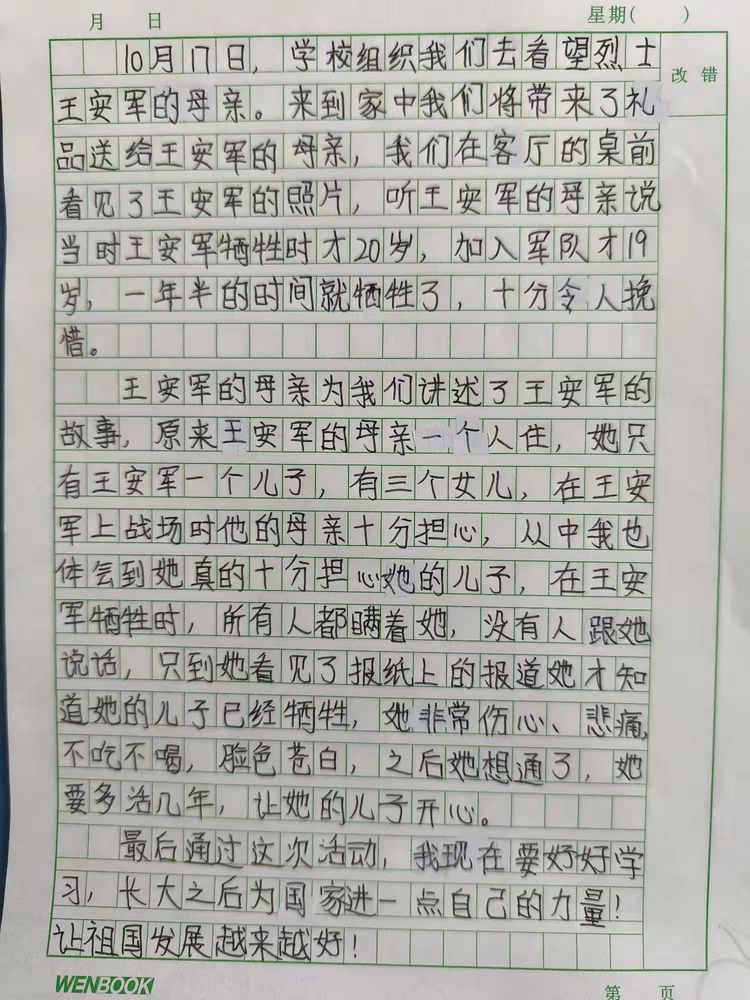 月 日 星期( )
改错
10月17日，学校组织我们去看望烈士
王安军的母亲。来到家中我们将带来了礼
品送给王安军的母亲，我们在客厅的桌前
看见了王安军的照片，听王安军的母亲说
当时王安军牺牲时才20岁，加入军队才19
岁，一年半的时间就牺牲了，十分令人挽
惜。
王安军的母亲为我们讲述了王安军的
故事，原来王安军的母亲一个人住，她只
有王安军一个儿子，有三个女儿，在王安
军上战场时他的母亲十分担心，从中我也
体会到她真的十分担心她的儿子，在王安
军牺牲时，所有人都瞒着她，没有人跟她
说话，只到她看见了报纸上的报道她才知
道她的儿子已经牺牲，她非常伤心、悲痛，
不吃不喝，脸色苍白，之后她想通了，她
要多活几年，让她的儿子开心。
最后通过这次活动，我现在要好好学
习，长大之后为国家进一点自己的力量！
让祖国发展越来越好！
WENBOOK 第 页